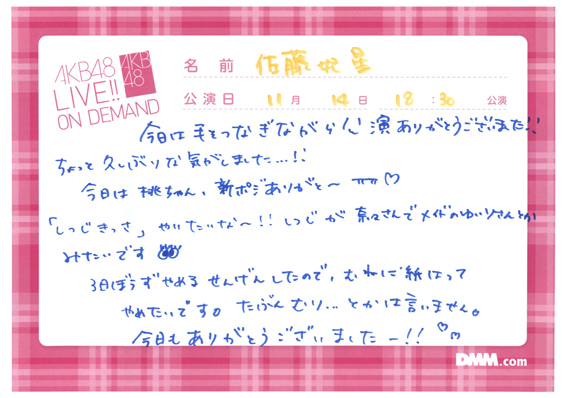 AKB48
LIVE!!
ON DEMAND
AKB
48
名前 佐藤妃星
公演日 11月 14日 18:30 公演
今日は手をつなぎながら公演ありがとうございました!!
ちょっと久しぶりな気がしました…!!
今日は桃ちゃん、新ポジありがと〜 ♡
「しつじきっさ」やりたいな〜!! しつじが奈々さんでメイドのゆいりさんとか
みたいです
3日ぼうずやめるせんげんしたので、むねに紙はって
やめたいです。たぶんむり…とかは言いません。
今日もありがとうございましたー!! ♡♡
DMM.com